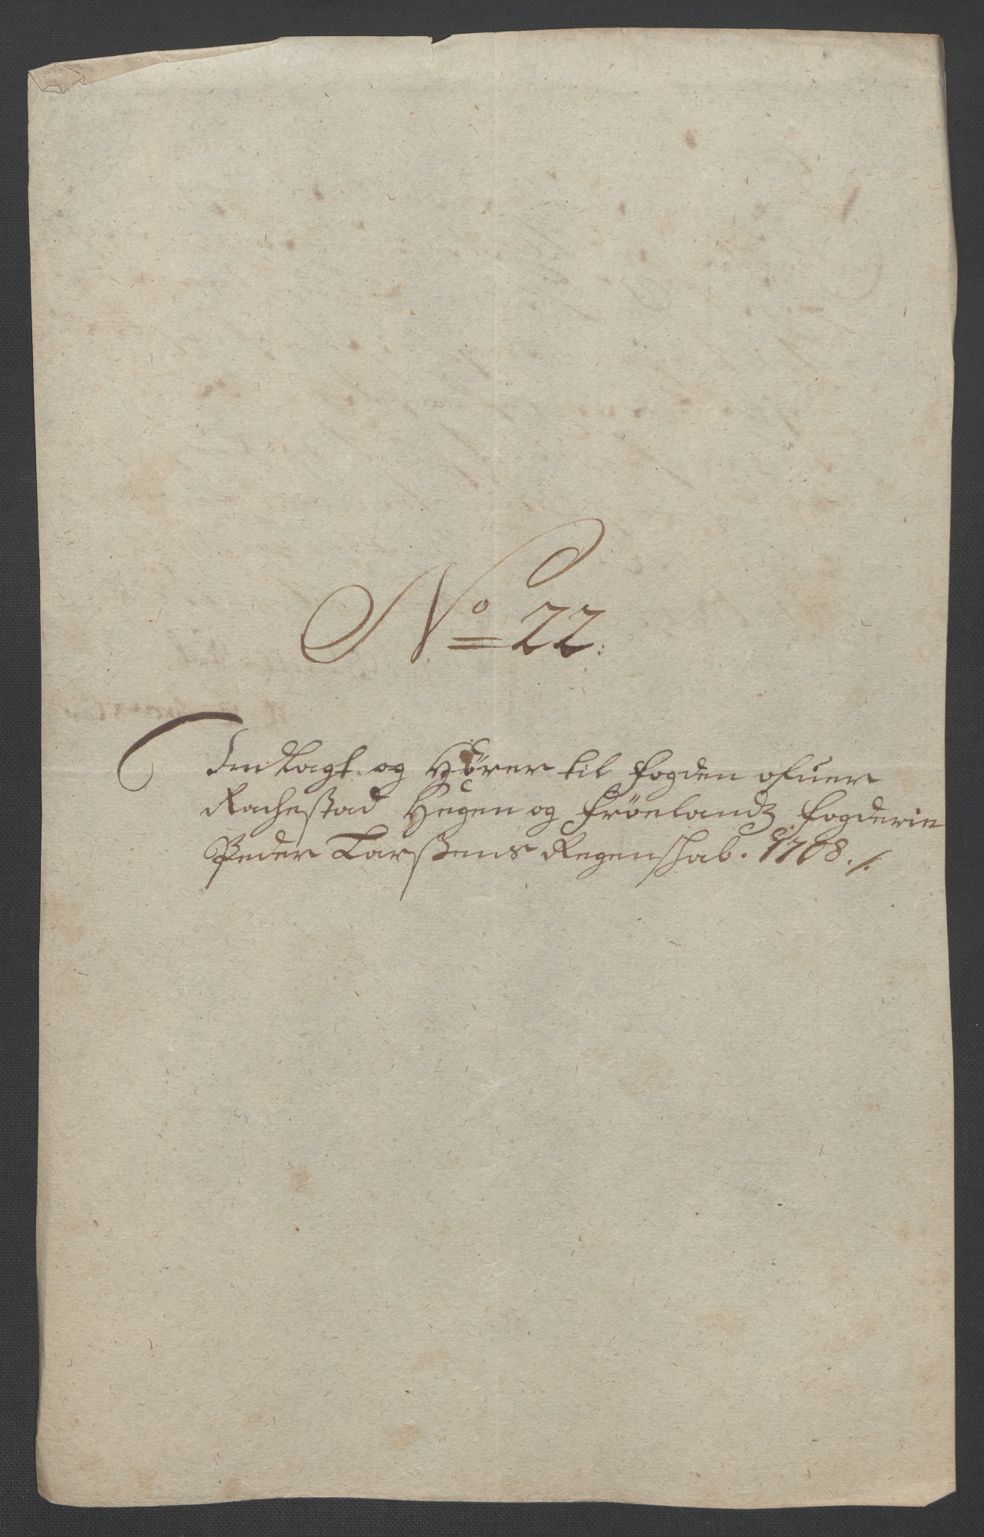 No 22:
Indlagt og Hører til fogden ofuer
Rachestad Heggen og Frøelandz fogderie
Peder Larßens Regenschab. 1708 ./.